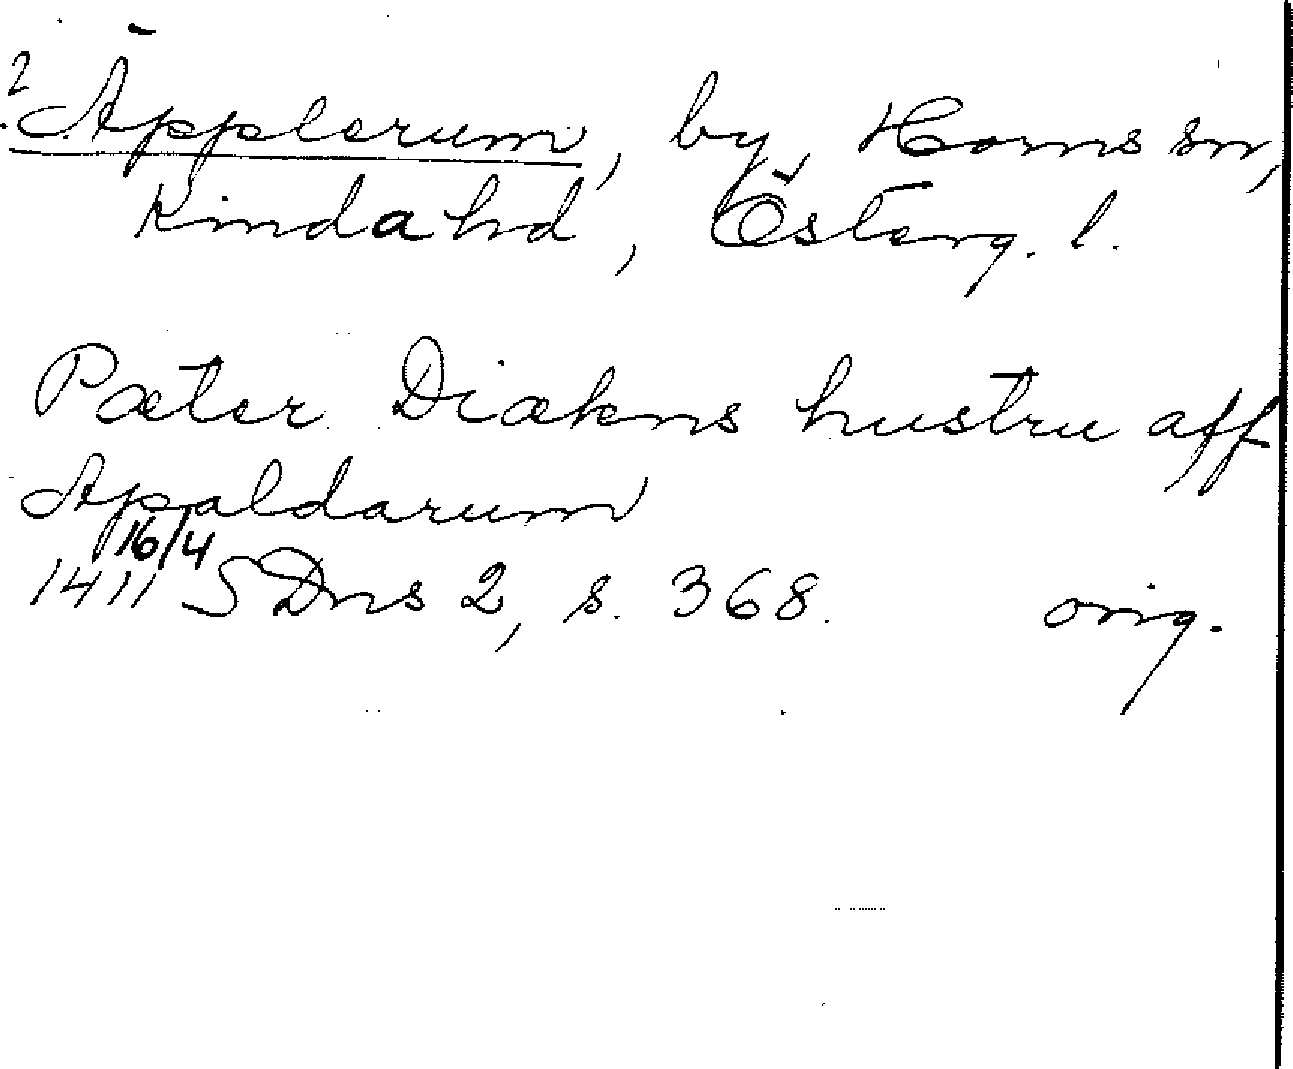 ? Äpplerum, by, Horns sn,
Kinda hd, Österg. l.
Pæter Diækns hustru aff
Apaldarum
1411 16/4 SDns 2, s. 368. orig.